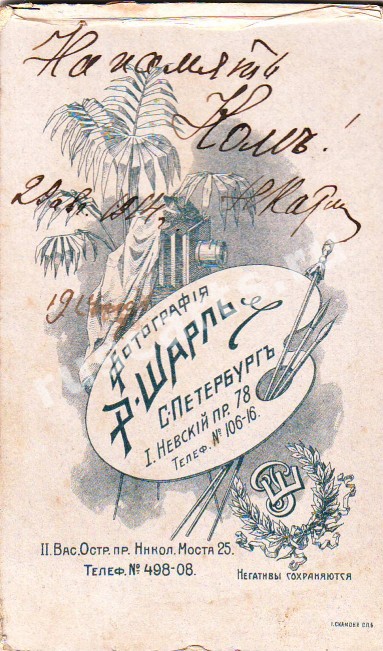 На память
Колѣ!
Фотографія
Р. Шарль
С. Петербургъ
I. Невскій пр. 78
Телеф. № 106-16.
II. Вас. Остр. пр. Никол. Моста 25.
Телеф. № 498-08.
Негативы сохраняются